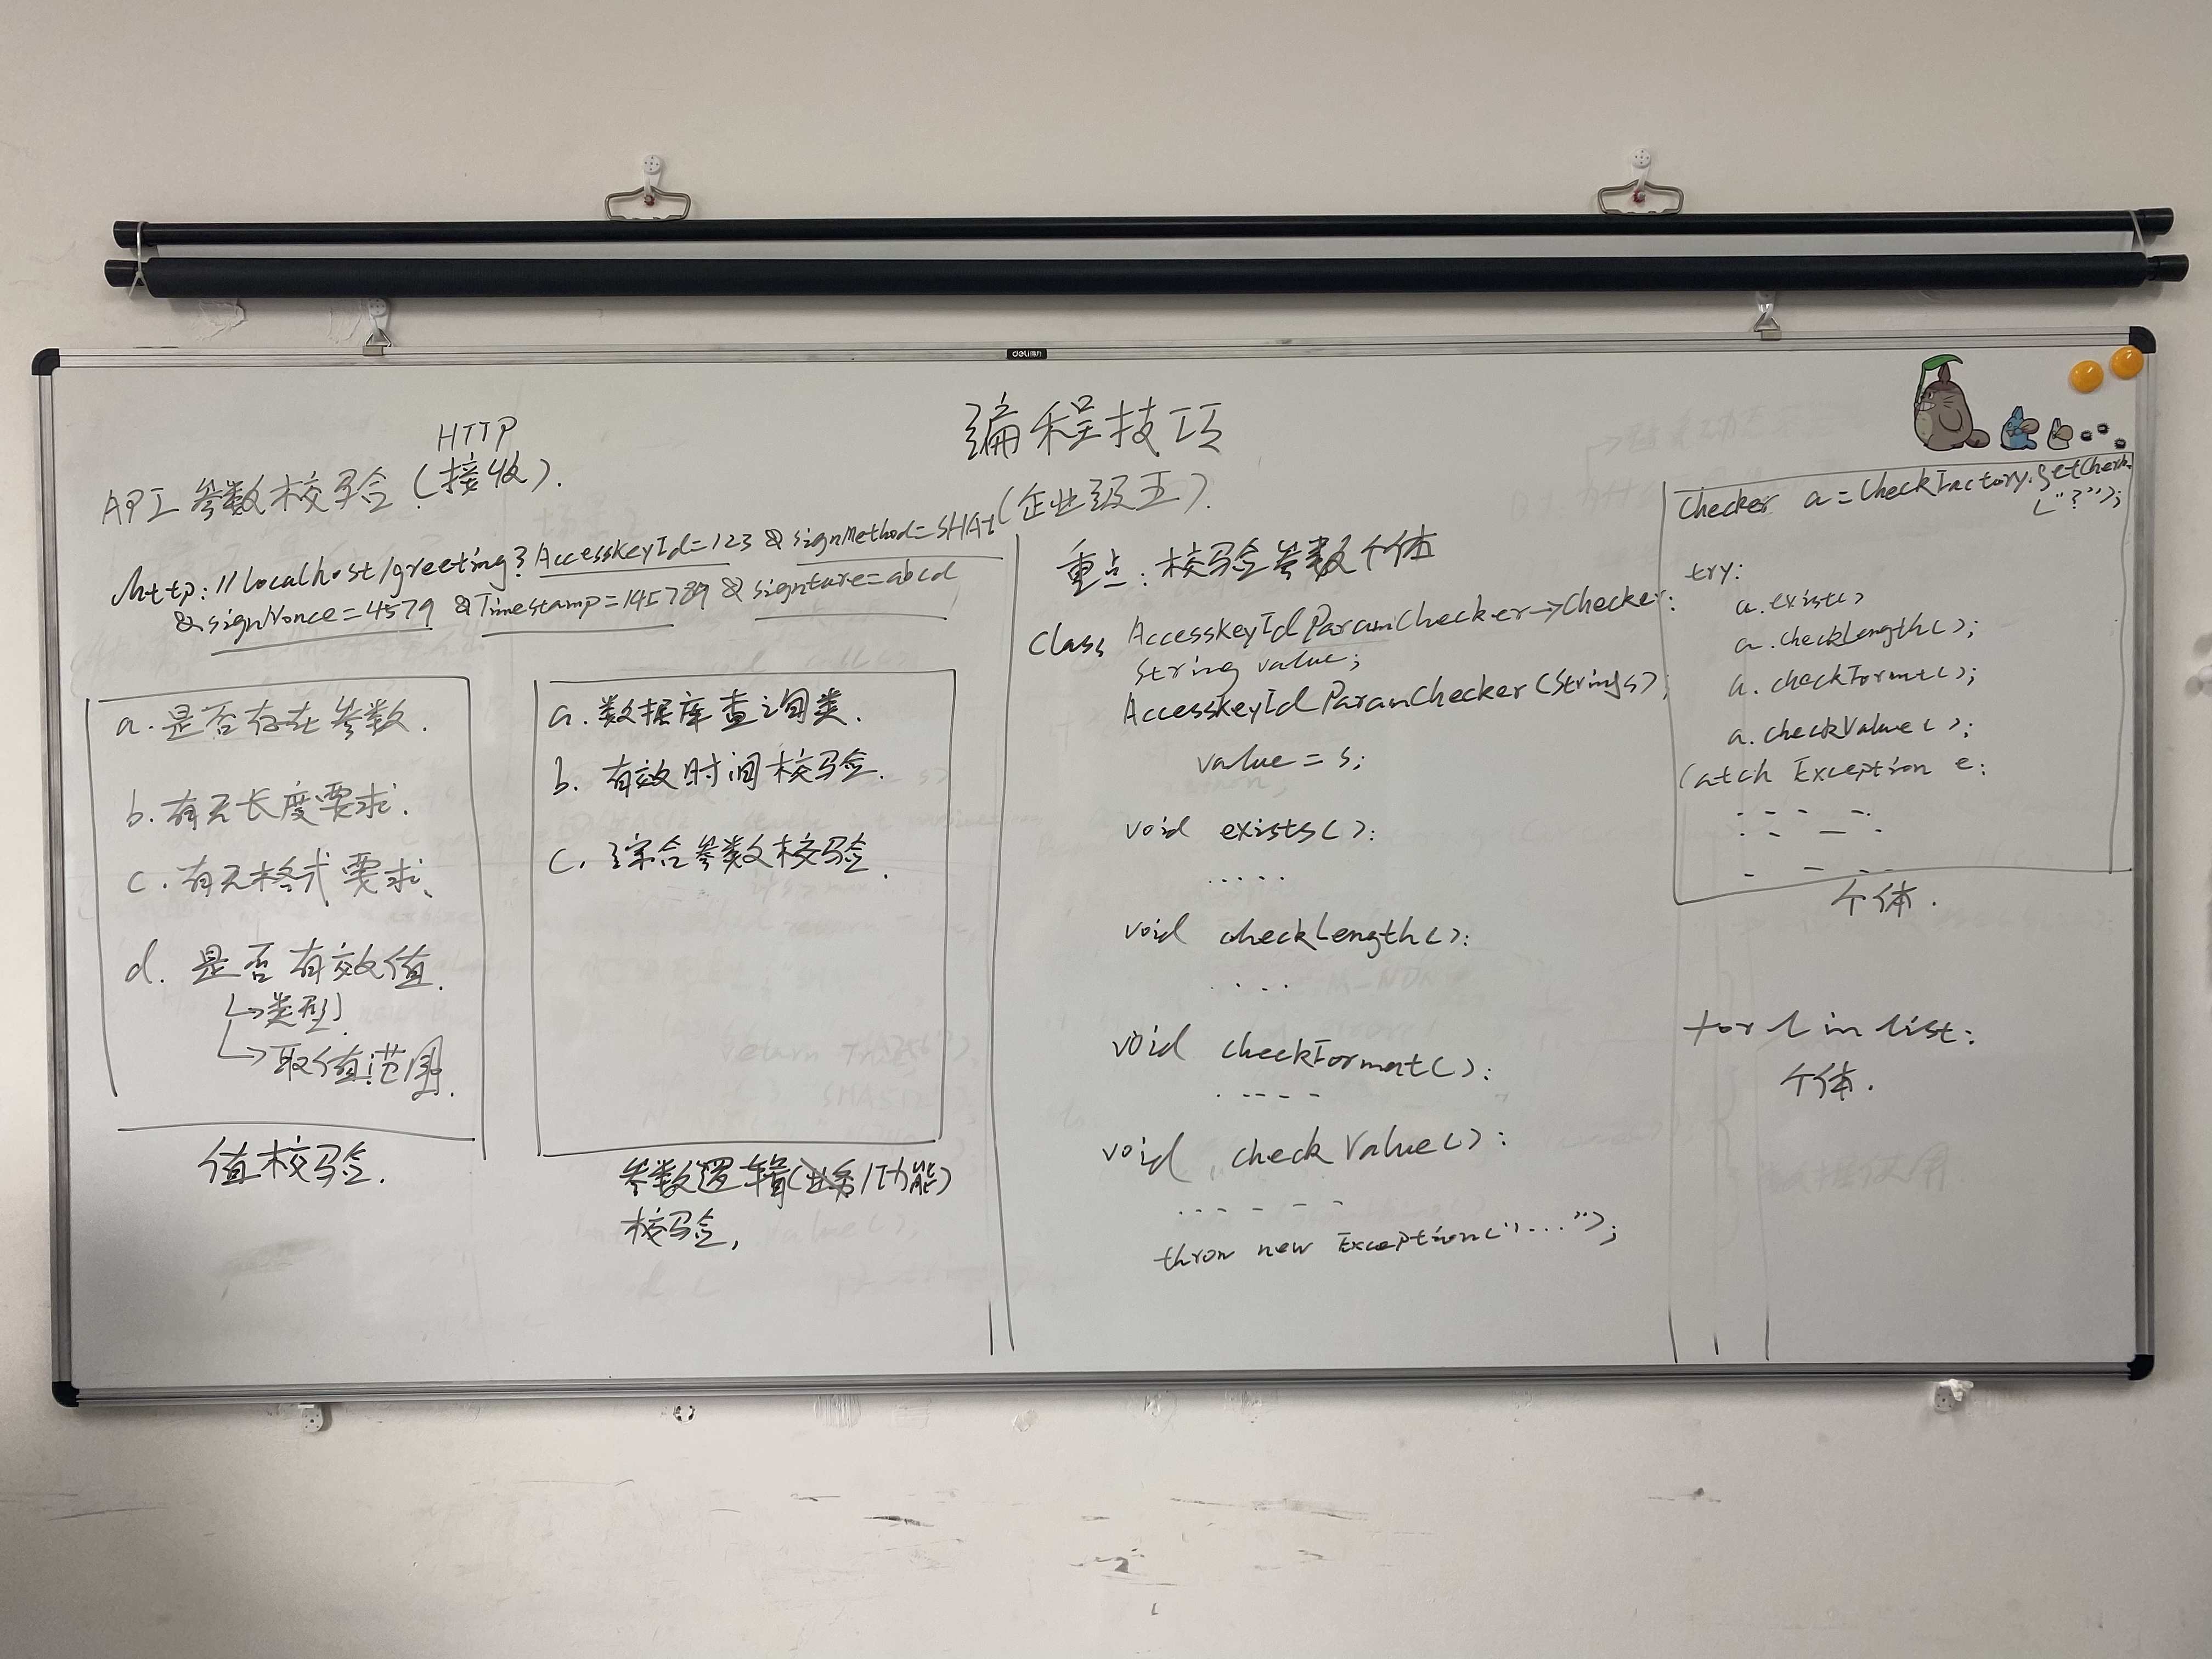 deli得力
编程技巧
(企业级五).
HTTP
API 参数校验(接收).
http://localhost/greeting?AccessKeyId=123 & signMethod=SHA1
&signNonce=4579 &Timestamp=145789 & signture=abcd
a.是否存在参数.
b.有无长度要求.
c.有无格式要求、
d. 是否有效值.
↳类型.
↳取值范围.
值校验.
a.数据库查询类.
b. 有效时间校验.
c. 综合参数校验.
参数逻辑(业务/功能)
校验,
重点:校验参数个体
Class AccessKeyIdParamChecker→Checker:
String value;
AccessKeyIdParamChecker(String s);
value = s;
void exists():
.....
void checkLength():
....
void checkFormat():
.----
void checkValue():
......
throw new Exception("....");
Checker a = CheckFactory.getCheck
("?");
try:
a.exist()
a.checkLength();
a.checkFormt();
a.checkValue();
Catch Exception e:
个体.
for l in list:
个体.